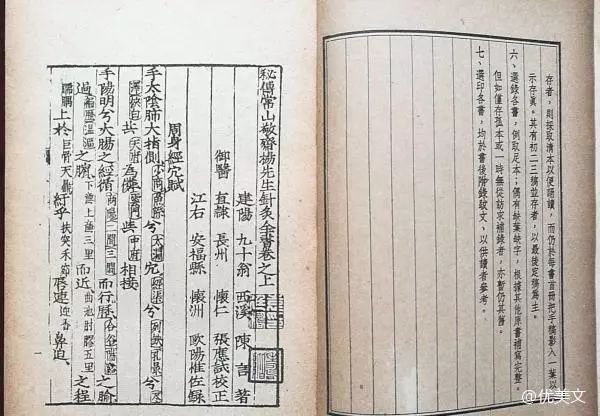 存者，則採取清本以便誦讀，而仍於每書首冊把手稿影入一葉以
示存眞。其有初二三稿並存者，以最後定稿爲主。
六、選錄各書，側取足本；偶有缺葉缺字，根據其他原書補寫完整。
但如僅存孤本或一時無從訪求補錄者，亦暫仍其舊。
七、選印各書，均於書後附錄跋文、以供讀者參考。
秘傳常山敬齋楊先生針灸全書卷之上
建陽 九十翁 西溪 陳言 著
御醫 直隸 長州 懷仁 張應試校正
江右 安福縣 懷洲 歐陽惟佐錄
周身經穴賦
手太陰肺大指側少商魚際兮太淵穴經渠兮列缺孔最兮
澤俠白共天府為儔雲門共中府相接
手陽明兮大腸之經循商陽二間三間而行歷合谷陽谿之腧
過偏歷溫溜之腑下廉上廉三里而近曲池肘髎五里之程
臑髃上於巨骨天鼎紆乎扶突禾節唇連迎香鼻迫
@优美文